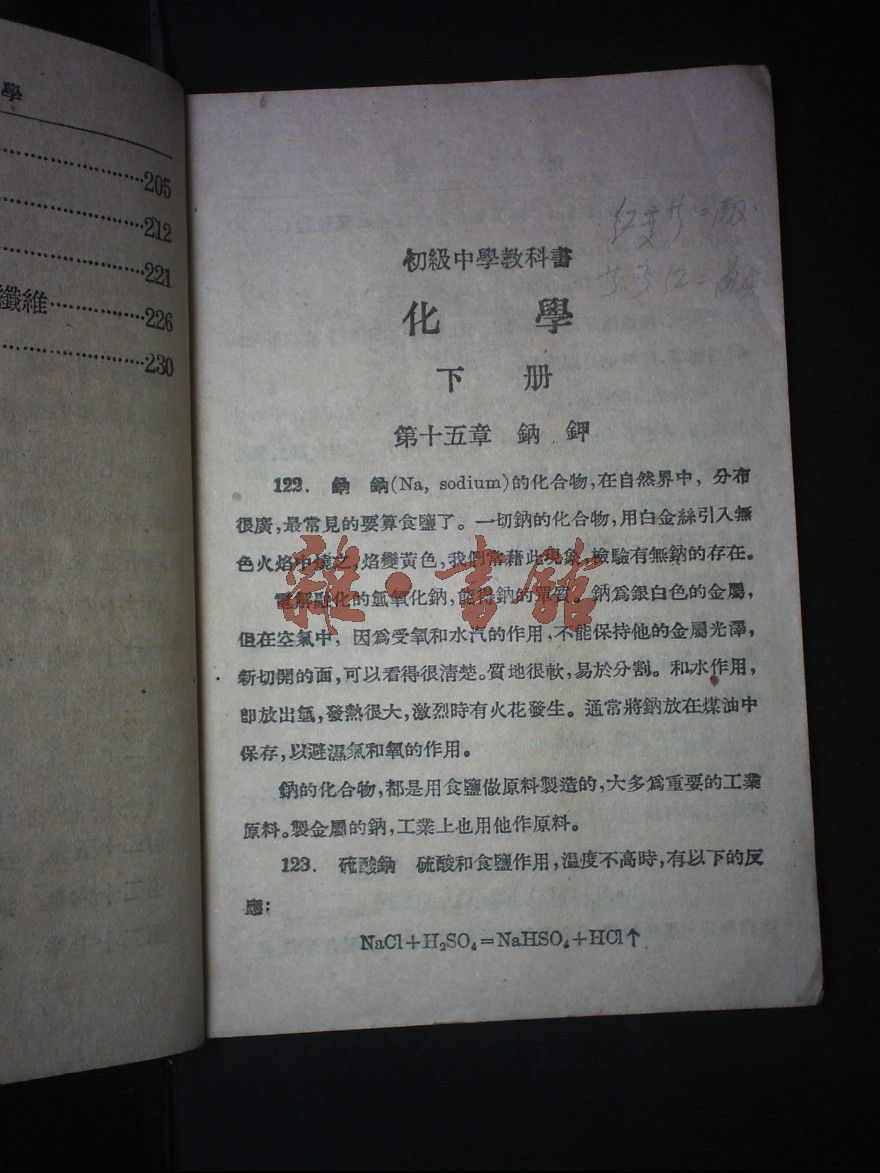 學
205
212
221
纖維 226
230
初級中學教科書
化 學
下 册
第十五章 鈉 鉀
122. 鈉 鈉(Na, sodium)的化合物,在自然界中,分布
很廣,最常見的要算食鹽了。一切鈉的化合物,用白金絲引入無
色火焰中燒之,焰變黃色,我們常藉此現象,檢驗有無鈉的存在。
電解融化的氫氧化鈉,能得鈉的單質。鈉爲銀白色的金屬,
但在空氣中,因爲受氧和水汽的作用,不能保持他的金屬光澤,
新切開的面,可以看得很清楚。質地很軟,易於分割。和水作用,
卽放出氫,發熱很大,激烈時有火花發生。通常將鈉放在煤油中
保存,以避濕氣和氧的作用。
鈉的化合物,都是用食鹽做原料製造的,大多爲重要的工業
原料。製金屬的鈉,工業上也用他作原料。
123. 硫酸鈉 硫酸和食鹽作用,溫度不高時,有以下的反
應:
NaCl+H₂SO₄=NaHSO₄+HCl↑
雜·書館